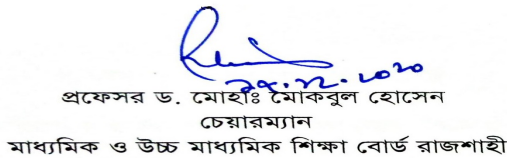 ২৯.১২.২০২০
প্রফেসর ড. মোহাঃ মোকবুল হোসেন
চেয়ারম্যান
মাধ্যমিক ও উচ্চ মাধ্যমিক শিক্ষা বোর্ড রাজশাহী